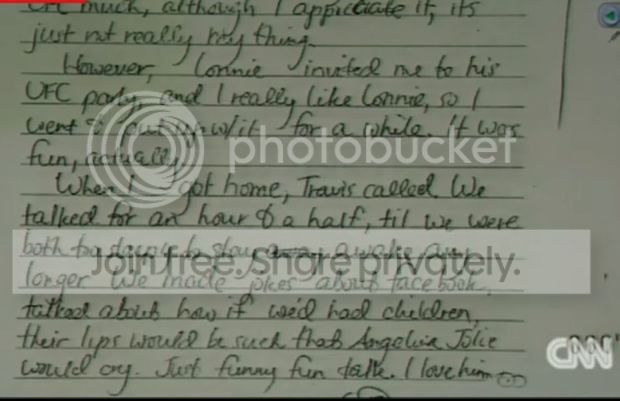 UFC much, although I appriciate it, its
just not really my thing.
However, Lonnie invited me to his
UFC party, and I really like Lonnie, so I
went & put up w/it for a while. It was
fun, actually.
When I got home, Travis called. We
talked for an hour & a half, til we were
both too to stay awake any
longer. We made jokes about facebook,
talked about how if we'd had children,
their lips would be such that Angelina Jolie
would cry. Just funny fun talk. I love him
photobucket
Join free. Share privately.
CNN